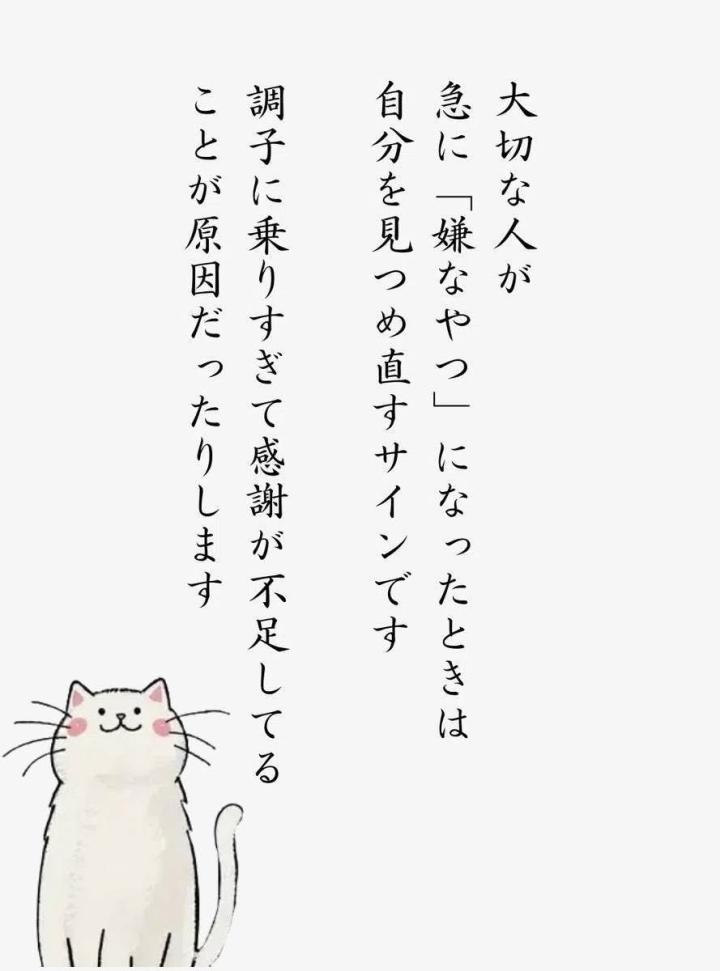 大切な人が
急に「嫌なやつ」になったときは
自分を見つめ直すサインです
調子に乗りすぎて感謝が不足してる
ことが原因だったりします